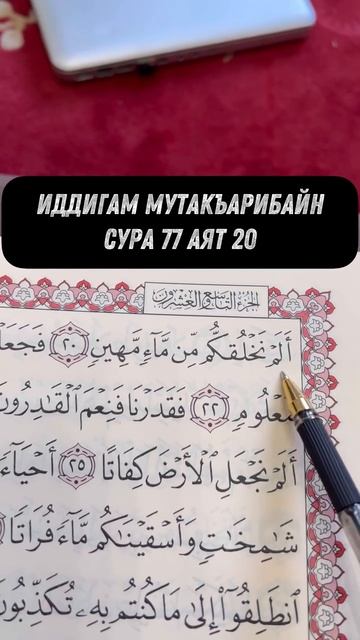 ИДДИГАМ МУТАКЪАРИБАЙН
СУРА 77 АЯТ 20
الجزء التاسع والعشرون
أَلَمْ نَخْلُقكُّم مِّن مَّآءٍ مَّهِينٍ ٢٠ فَجَعَلْ
مَّعْلُومٍ ٢٢ فَقَدَرْنَا فَنِعْمَ ٱلْقَٰدِرُونَ
أَلَمْ نَجْعَلِ ٱلْأَرْضَ كِفَاتًا ٢٥ أَحْيَآءً
شَٰمِخَٰتٍ وَأَسْقَيْنَٰكُم مَّآءً فُرَاتًا
ٱنطَلِقُوٓا۟ إِلَىٰ مَا كُنتُم بِهِۦ تُكَذِّبُونَ